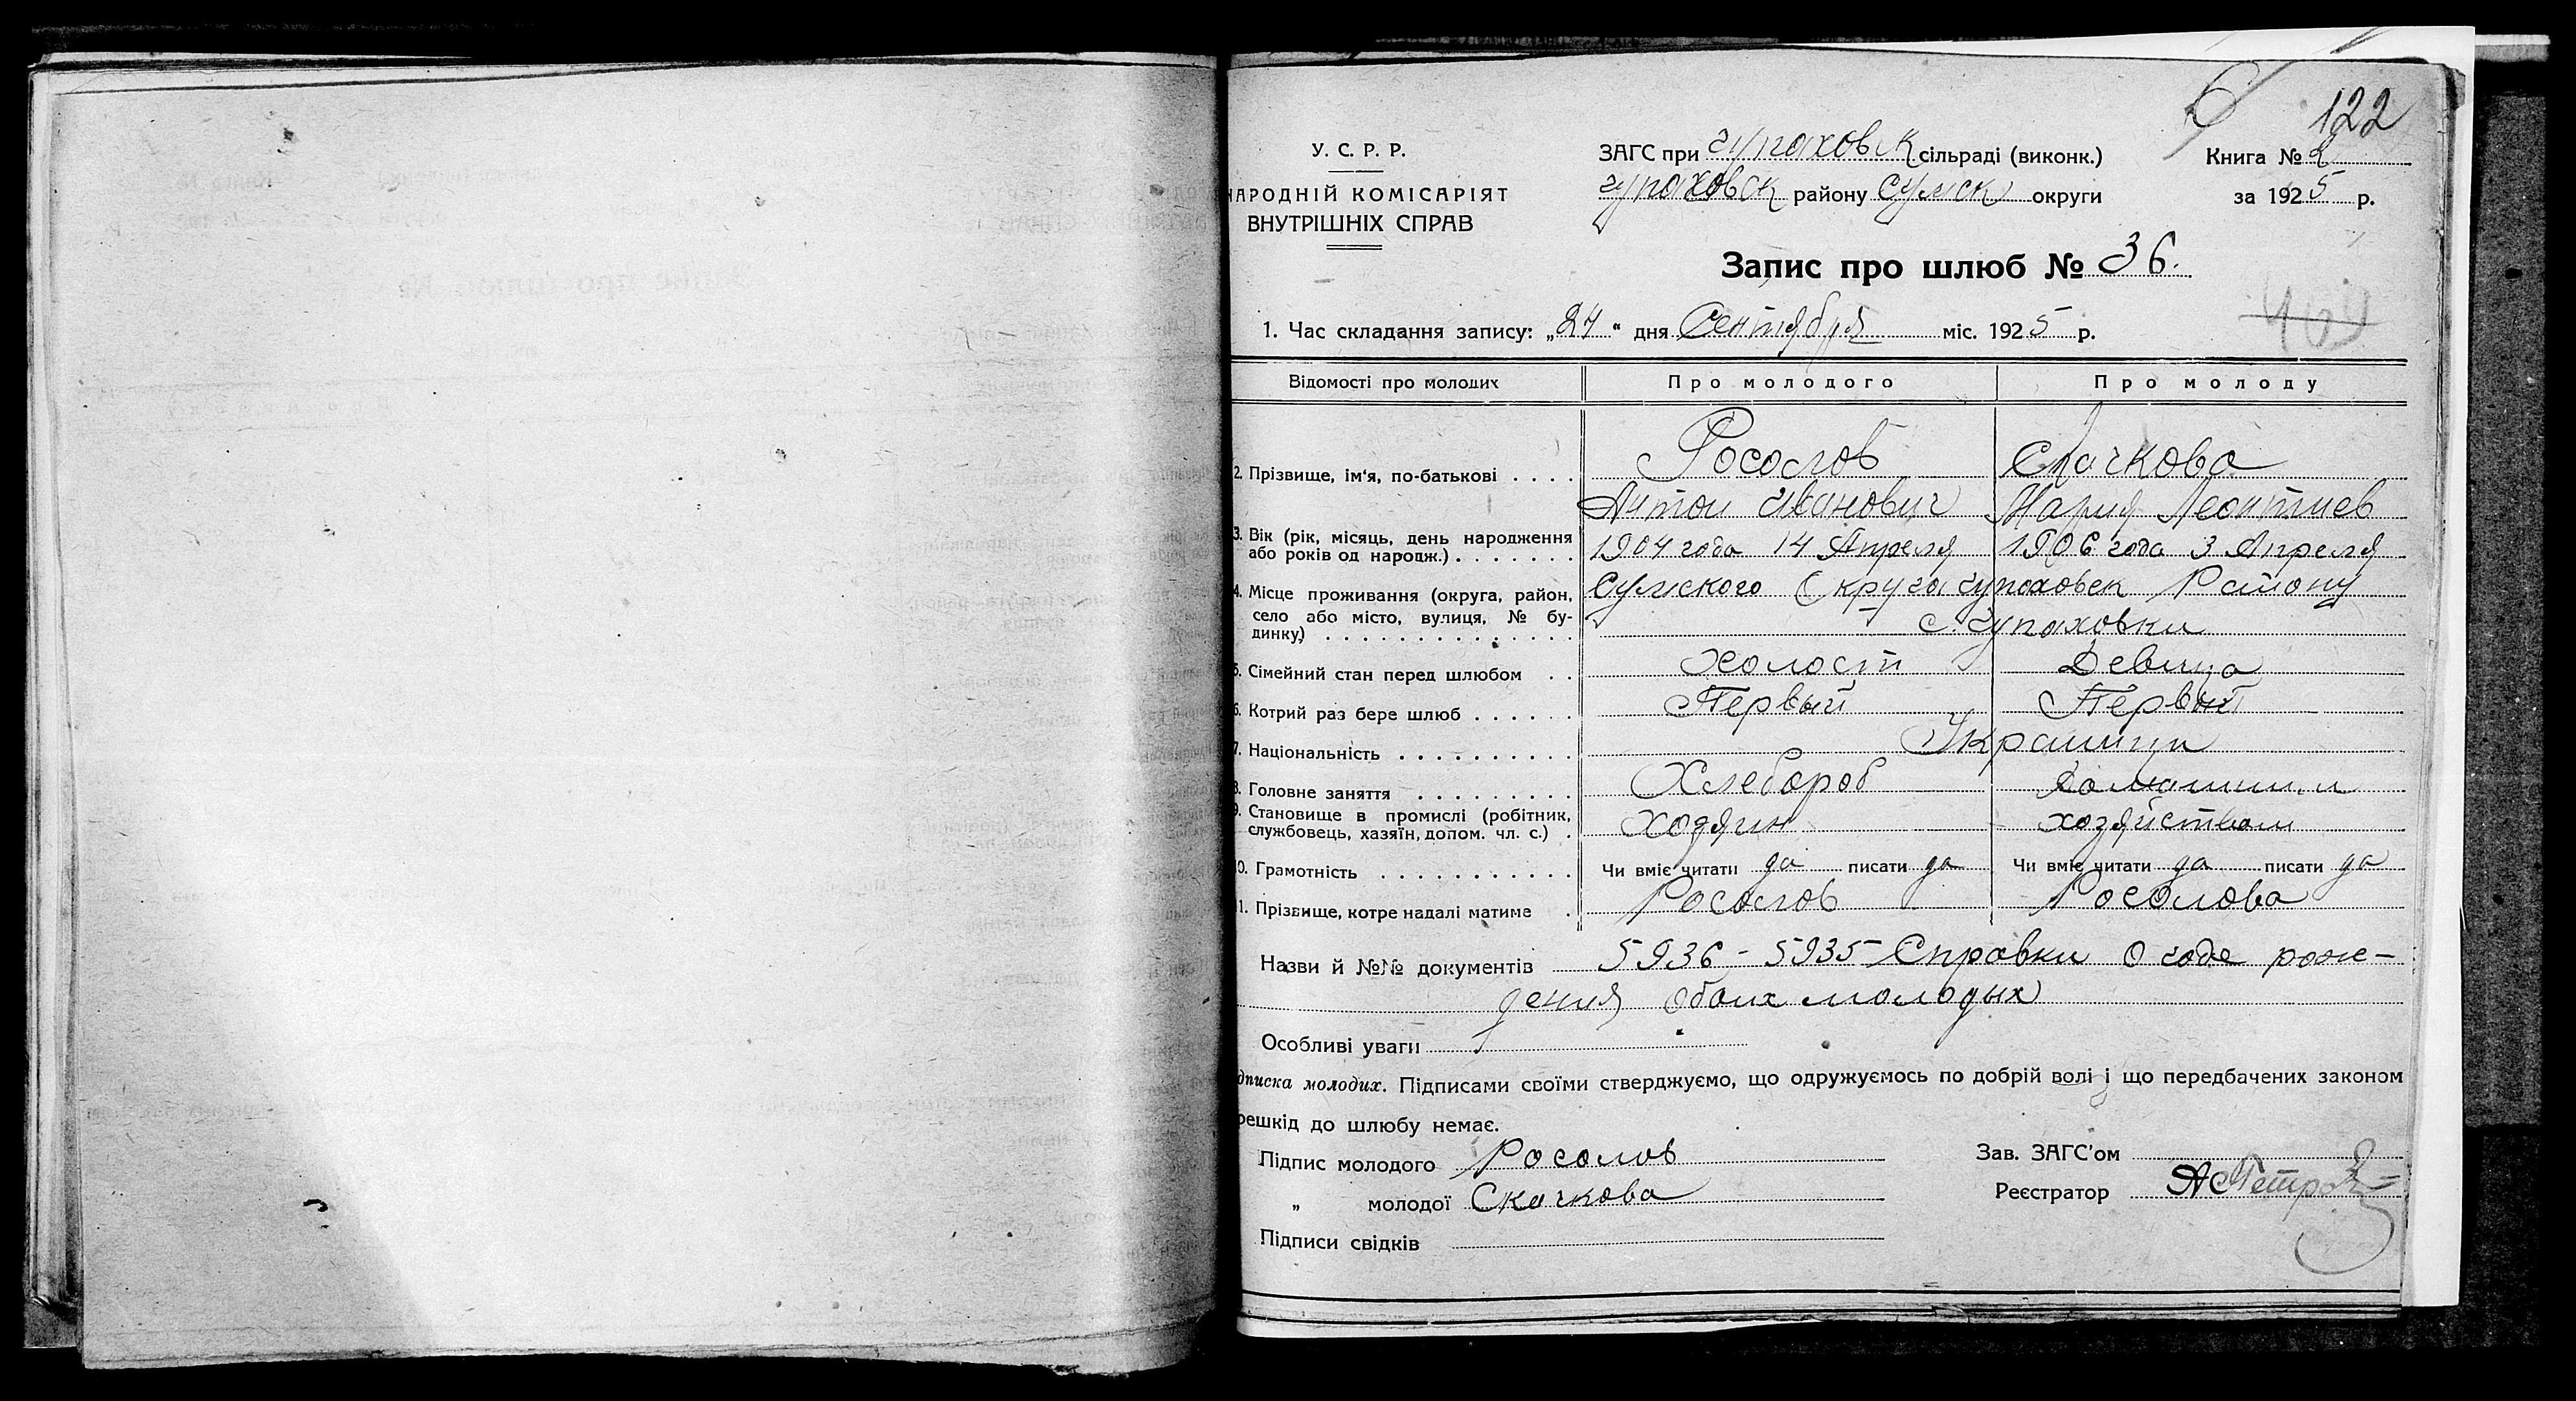 122
У. С. Р. Р.
НАРОДНІЙ КОМІСАРІЯТ
ВНУТРІШНІХ СПРАВ
ЗАГС при Чупаховск сільраді (виконк.)
Чупаховск району Сумск округи
Книга № 2
за 1925 р.
Запис про шлюб № 36.
1. Час складання запису: „24" дня Сентября міс. 1925 р.
Відомості про молодих Про молодого Про молоду
2. Прізвище, ім'я, по-батькові . . . . Росолов Скачкова
Антон Иванович Мария Леонтиев
3. Вік (рік, місяць, день народження 1904 года 14 Апреля 1906 года 3 Апреля
або років од народж.) . . . . . . .
4. Місце проживання (округа, район, Сумского Округа Чупаховск Району
село або місто, вулиця, № бу-
динку) . . . . . . . . . . . . . . с. Чупаховки
5. Сімейний стан перед шлюбом . . Холост Девица
6. Котрий раз бере шлюб . . . . . . Первый Первый
7. Національність . . . . . . . . . . Украинци
8. Головне заняття . . . . . . . . . Хлебороб Домашним
9. Становище в промислі (робітник, Ходяин хозяйством
службовець, хазяїн, допом. чл. с.) .
10. Грамотність . . . . . . . . . . . Чи вміє читати да писати да Чи вміє читати да писати да
11. Прізвище, котре надалі матиме . Росолов Росолова
Назви й №№ документів 5936 - 5935 Справки о годе рож-
дения обоих молодых
Особливі уваги
дписка молодих. Підписами своїми стверджуємо, що одружуємось по добрій волі і що передбачених законом
решкід до шлюбу немає.
Підпис молодого Росолов
„ молодої Скачкова
Підписи свідків
Зав. ЗАГС'ом
Реєстратор АС Петров